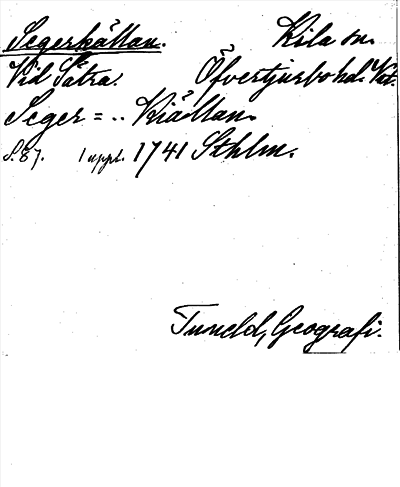 Segerkällan. Kila sn.
Vid Sätra. Öfvertjurbo hd. Vst.
Seger = .. Kiällan.
S. 87. 1 uppl. 1741 Sthlm.
Tuneld, Geografi.